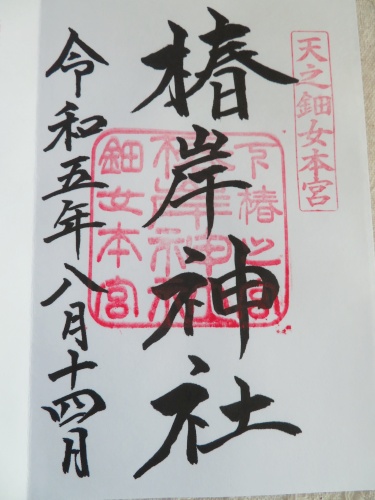 天之鈿女本宮
椿岸神社
下椿之宮
椿岸神社
鈿女本宮
令和五年八月十四月